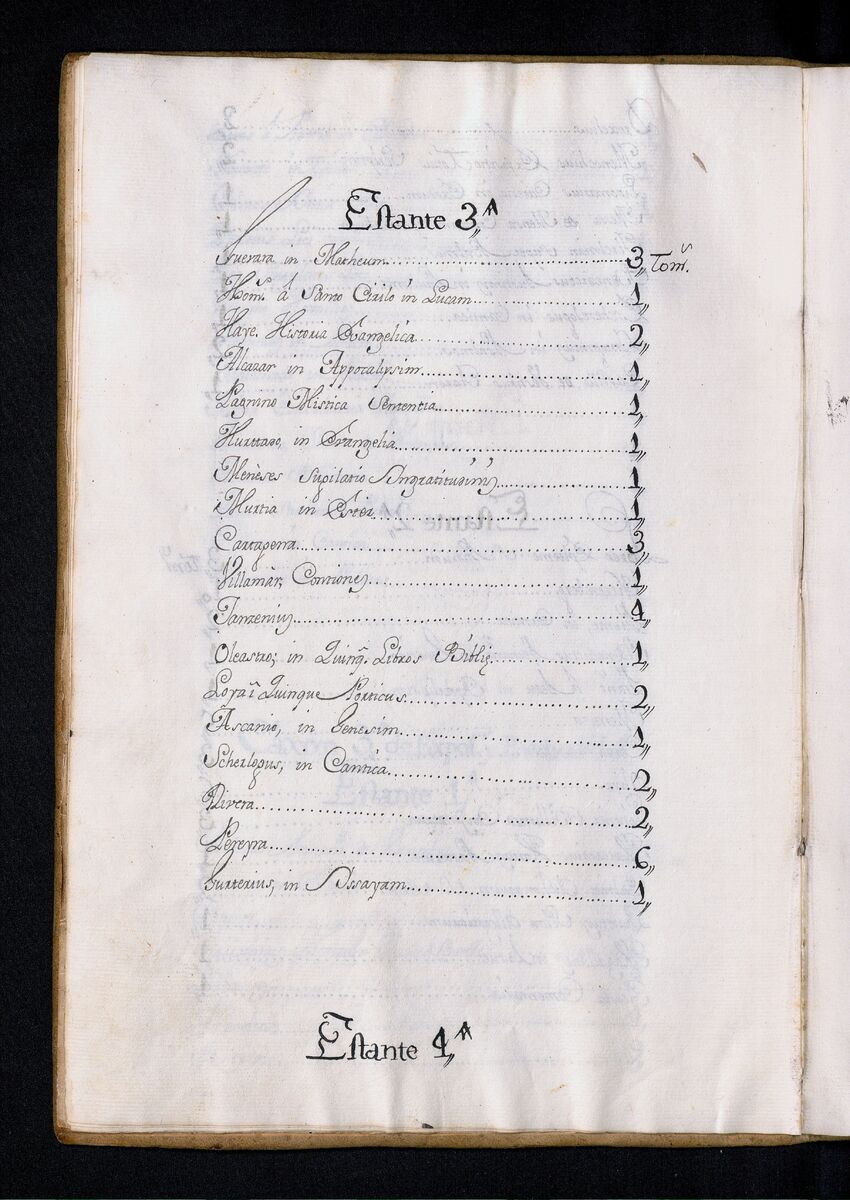 Estante 3,,ᴬ
Fuerara in Matheum 3,, Tomˢ.
Homˢ. d Santo Cirilo in Lucam 1,,
Haye. Historia Evangelica 2,,
Alcazar in Appocalypsim 1,,
Pagnino Mistica Sententia 1,,
Hurttado, in Evangelia 1,,
Menèses Supilatio Ingratitudinis 1,,
Murtia in Ester 1,,
Cartagena 3,,
Villamàr, Contiones 1,,
Janzenius 4,,
Oleastro; in Quinq. Libros Biblię 1,,
Quinque Porticus 2,,
Ascanio, in Genesim 1,,
Scherlogus, in Cantica 2,,
Rivera 2,,
Pereyra 6,,
in Issayam 1,,
Estante 4,,ᴬ